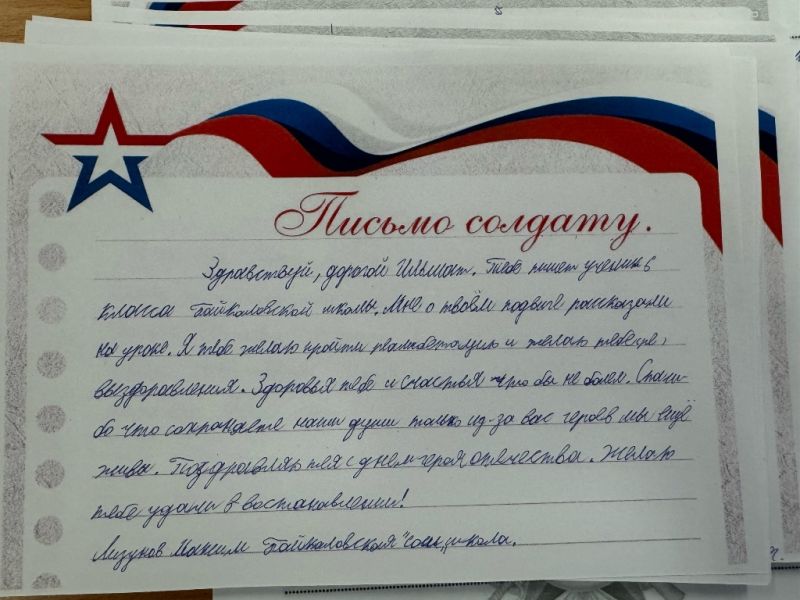 Письмо солдату.
Здравствуй, дорогой Ильшат. Тебе пишет ученик 6
класса Байкаловской школы. Мне о твоём подвиге рассказали
на уроке. Я тебе желаю пройти реабетацию и желаю тебе
выздоравления. Здоровья тебе и счастья что бы не болел. Спаси-
бо что сохраняете наши души только из-за вас героев мы ещё
живы. Поздравляю тея с днем героя отечества. Желаю
тебе удачи в востановлении!
Лизунов Максим Байкаловская "сош школа.